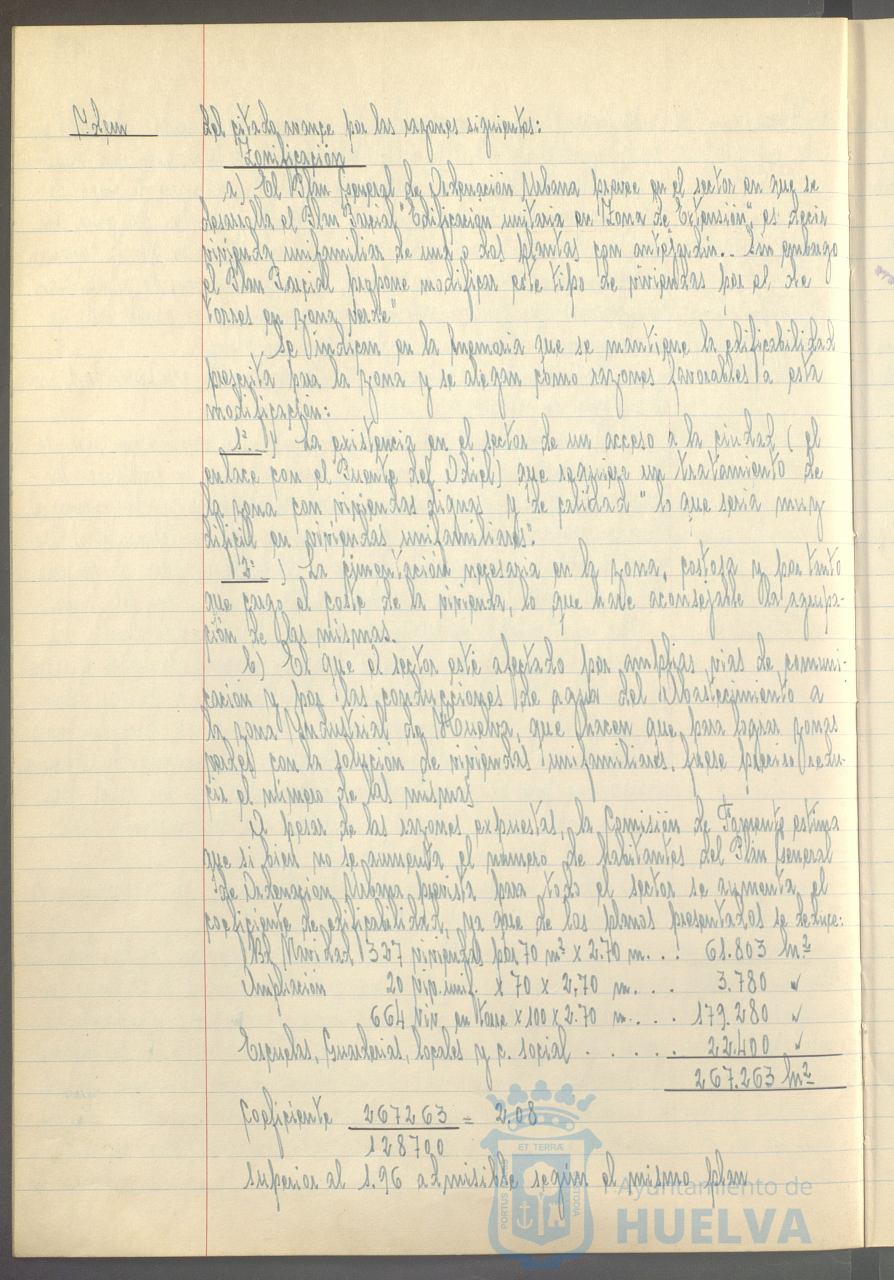 del citado avance por las razones siguientes:
Zonificación
a) El Plan General de Ordenación Urbana prevee en el sector en que se
desarrolla el Plan Parcial "Edificación unitaria en Zona de Extensión", es decir
vivienda unifamiliar de una o dos plantas con antejardín.. Sin embargo
el Plan Parcial propone modificar este tipo de viviendas por el de
torres en zona verde"
Se indican en la memoria que se mantiene la edificabilidad
prescrita para la zona y se alegan como razones favorables a esta
modificación:
1º.-) La existencia en el sector de un acceso a la ciudad (el
enlace con el Puente del Odiel) que requiere un tratamiento de
la zona con viviendas dignas y de calidad "lo que seria muy
dificil en viviendas unifamiliares".
2º-) La cimentación necesaria en la zona, costosa y por tanto
que grava el coste de la vivienda, lo que hace aconsejable la agrupa-
ción de las mismas.
b) El que el sector esté afectado por amplias vias de comuni-
cación y por las conducciones de agua del Abastecimiento a
la zona Industrial de Huelva, que hacen que para lograr zonas
verdes con la solución de viviendas unifamiliares, fuese preciso redu-
cir el número de las mismas
A pesar de las razones expuestas, la Comisión de Fomento estima
que si bien no se aumenta el número de habitantes del Plan General
de Ordenación Urbana prevista para todo el sector se aumenta el
coeficiente de edificabilidad, ya que de los planos presentados se deduce:
Bda Navidad 327 viviendas por 70 m² x 2.70 m... 61.803 m²
Ampliación 20 viv. unif. x 70 x 2,70 m.... 3.780 "
664 viv. en torre x 100 x 2.70 m.... 179.280 "
Escuelas, Guarderias, locales y c. social ...... 22.400 "
267.263 m²
Coeficiente 267263 = 2,08
128700
superior al 1.96 admisible según el mismo plan
PORTUS
ET TERRÆ
CUSTODIA
Ayuntamiento de
HUELVA